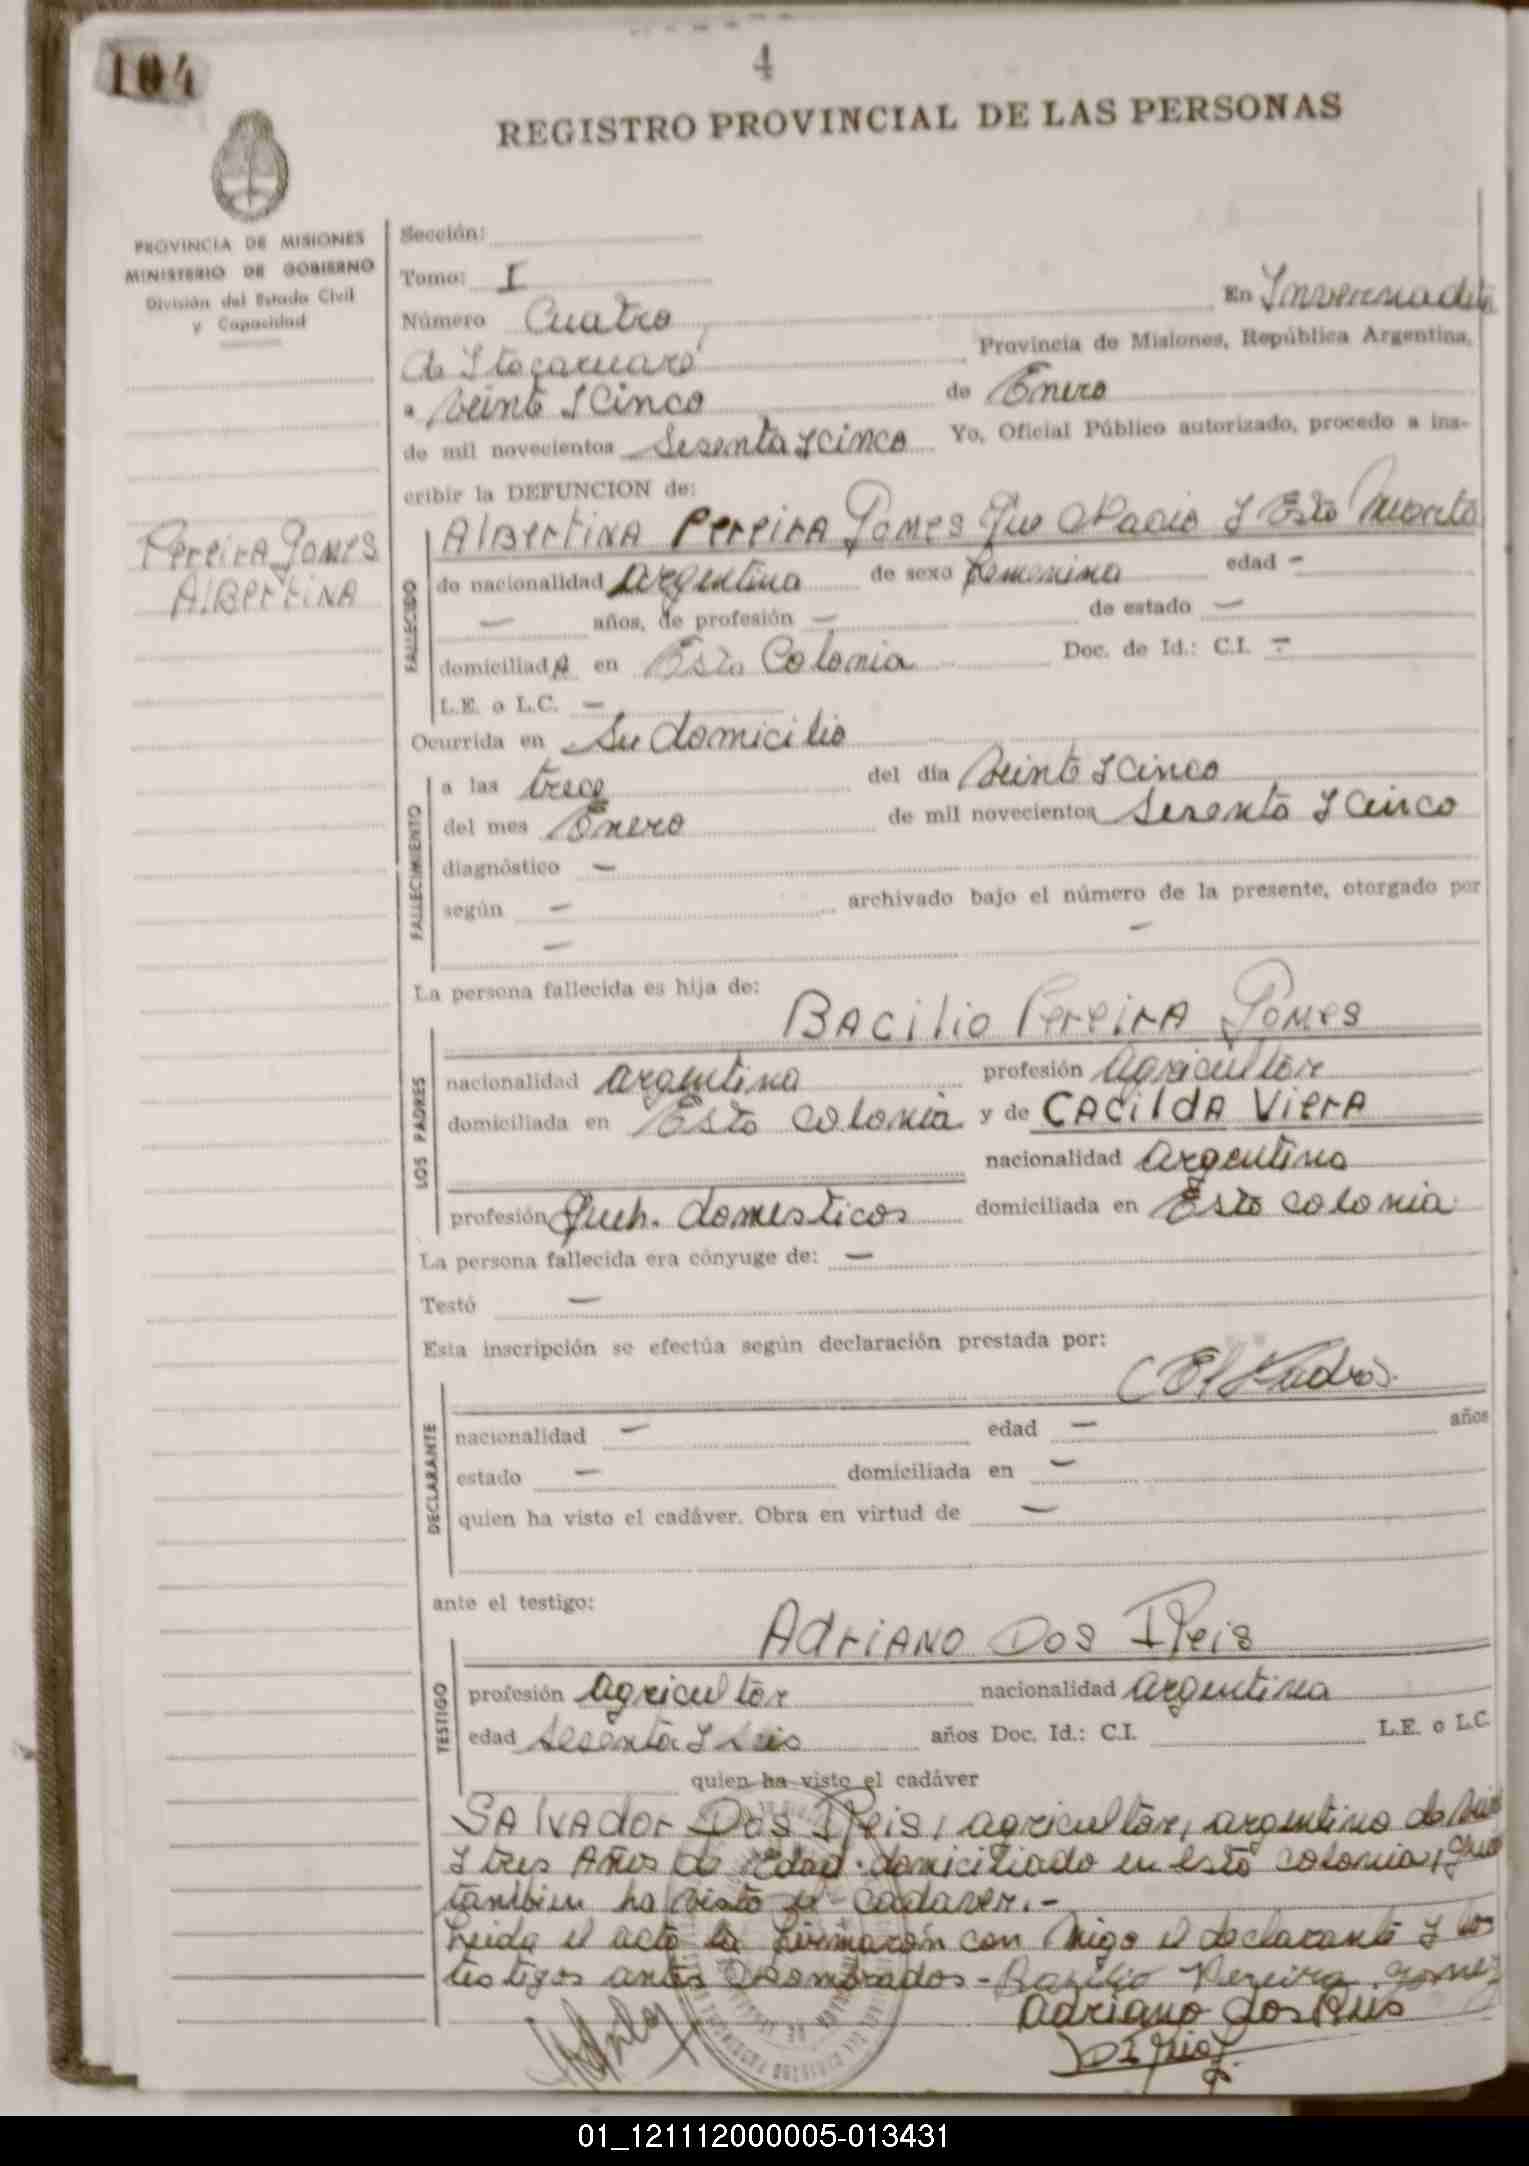 104
4
REGISTRO PROVINCIAL DE LAS PERSONAS
PROVINCIA DE MISIONES
MINISTERIO DE GOBIERNO
División del Estado Civil
y Capacidad
Sección:
Tomo: I
Número Cuatro En Invernadita
de Itacaruaré Provincia de Misiones, República Argentina,
a Veinte Y Cinco de Enero
de mil novecientos Sesenta Y Cinco Yo, Oficial Público autorizado, procedo a ins-
cribir la DEFUNCION de:
Pereira Gomes
Albertina
FALLECIDO
Albertina Pereira Gomes Que Nacio Y Esta Muerta
de nacionalidad Argentina de sexo femenina edad -
- años, de profesión - de estado -
domiciliada en Esta Colonia Doc. de Id.: C.I. -
L.E. o L.C. -
Ocurrida en Su domicilio
FALLECIMIENTO
a las trece del día Veinte Y Cinco
del mes Enero de mil novecientos Sesenta Y Cinco
diagnóstico -
según - archivado bajo el número de la presente, otorgado por
- -
La persona fallecida es hija de:
LOS PADRES
Bacilio Pereira Gomes
nacionalidad argentina profesión agricultor
domiciliada en Esta colonia y de Cacilda Viera
nacionalidad argentina
profesión Queh. domesticos domiciliada en Esta colonia
La persona fallecida era cónyuge de: -
Testó -
Esta inscripción se efectúa según declaración prestada por:
DECLARANTE
(El Padre).
nacionalidad - edad - años
estado - domiciliada en -
quien ha visto el cadáver. Obra en virtud de -
ante el testigo:
TESTIGO
Adriano Dos Reis
profesión agricultor nacionalidad argentina
edad Sesenta Y Seis años Doc. Id.: C.I. L.E. o L.C.
quien ha visto el cadáver
Salvador Dos Reis, agricultor, argentino de
Y tres Años de Edad. domiciliado en esta colonia, que
tambien ha visto el cadaver.-
Leida el acta la firmaron con migo el declarante Y los
testigos antes nombrados- Bazilio Pereira gomez
adriano dos Reis
01_121112000005-013431